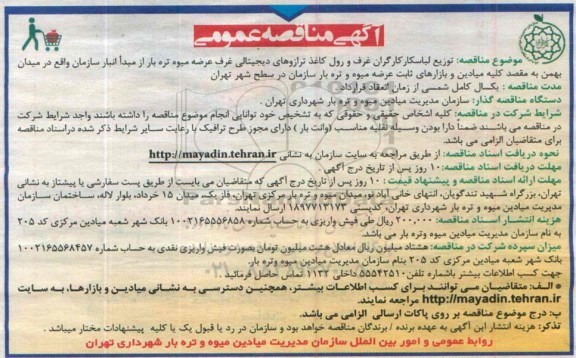 آگهی مناقصه عمومی
موضوع مناقصه: توزیع لباسکار کارگران غرف و رول کاغذ ترازوهای دیجیتالی غرف عرضه میوه تره بار از مبدأ انبار سازمان واقع در میدان
بهمن به مقصد کلیه میادین و بازارهای ثابت عرضه میوه و تره بار سازمان در سطح شهر تهران
مدت مناقصه : یکسال کامل شمسی از زمان انعقاد قرارداد
دستگاه مناقصه گذار: سازمان مدیریت میادین میوه و تره بار شهرداری تهران .
شرایط شرکت در مناقصه: کلیه اشخاص حقیقی و حقوقی که به تشخیص خود توانایی انجام موضوع مناقصه را داشته باشند واجد شرایط شرکت
در مناقصه می باشند ضمناً دارا بودن وسیله نقلیه مناسب (وانت بار ) دارای مجوز طرح ترافیک با رعایت سایر شرایط ذکر شده در اسناد مناقصه
برای متقاضیان الزامی می باشد.
نحوه دریافت اسناد مناقصه: از طریق مراجعه به سایت سازمان به نشانی http://mayadin.tehran.ir
مهلت دریافت اسناد مناقصه: ۱۰ روز پس از تاریخ درج آگهی
مهلت ارائه اسناد مناقصه و پیشنهاد قیمت : ۱۰ روز پس از تاریخ درج آگهی که متقاضیان می بایست از طریق پست سفارشی یا پیشتاز به نشانی
تهران، بزرگراه شهید تندگویان، انتهای خانی آباد نو، میدان میوه و تره بار مرکزی تهران، فاز یک، میدان ۱۵ خرداد، بلوار لاله، ساختمان سازمان
مدیریت میادین میوه و تره بار شهرداری تهران کدپستی ۱۸۹۷۷۱۳۱۷۳ ارسال نمایند.
هزینه انتشار اسناد مناقصه: ۲۰۰،۰۰۰ ریال طی فیش واریزی به حساب شماره ۱۰۰۲۱۶۵۵۵۶۸۵۸ بانک شهر شعبه میادین مرکزی کد ۲۰۵
به نام سازمان مدیریت می باشد.
میزان سپرده شرکت در مناقصه: هشتاد میلیون ریال معادل هشت میلیون تومان بصورت فیش واریزی نقدی به حساب شماره ۱۰۰۲۱۶۵۵۶۸۴۵۷
بانک شهر شعبه میادین مرکزی کد ۲۰۵ بنام سازمان مدیریت میادین میوه وتره بار.
جهت کسب اطلاعات بیشتر باشماره تلفن ۵۵۵۴۲۵۱۰ داخلی ۱۱۳۲ تماس حاصل فرمائید .
الف: متقاضیان می توانند برای کسب اطلاعات بیشتر، همچنین دسترسی به نشانی میادین و بازارها، به سایت
http://mayadin.tehran.ir مراجعه نمایند.
ب: درج موضوع مناقصه بر روی پاکات ارسالی الزامی می باشد.
تذکر: هزینه انتشار این آگهی به عهده برنده / برندگان مناقصه خواهد بود و سازمان در رد یا قبول یک یا کلیه پیشنهادات مختار میباشد .
روابط عمومی و امور بین الملل سازمان مدیریت میادین میوه و تره بار شهرداری تهران